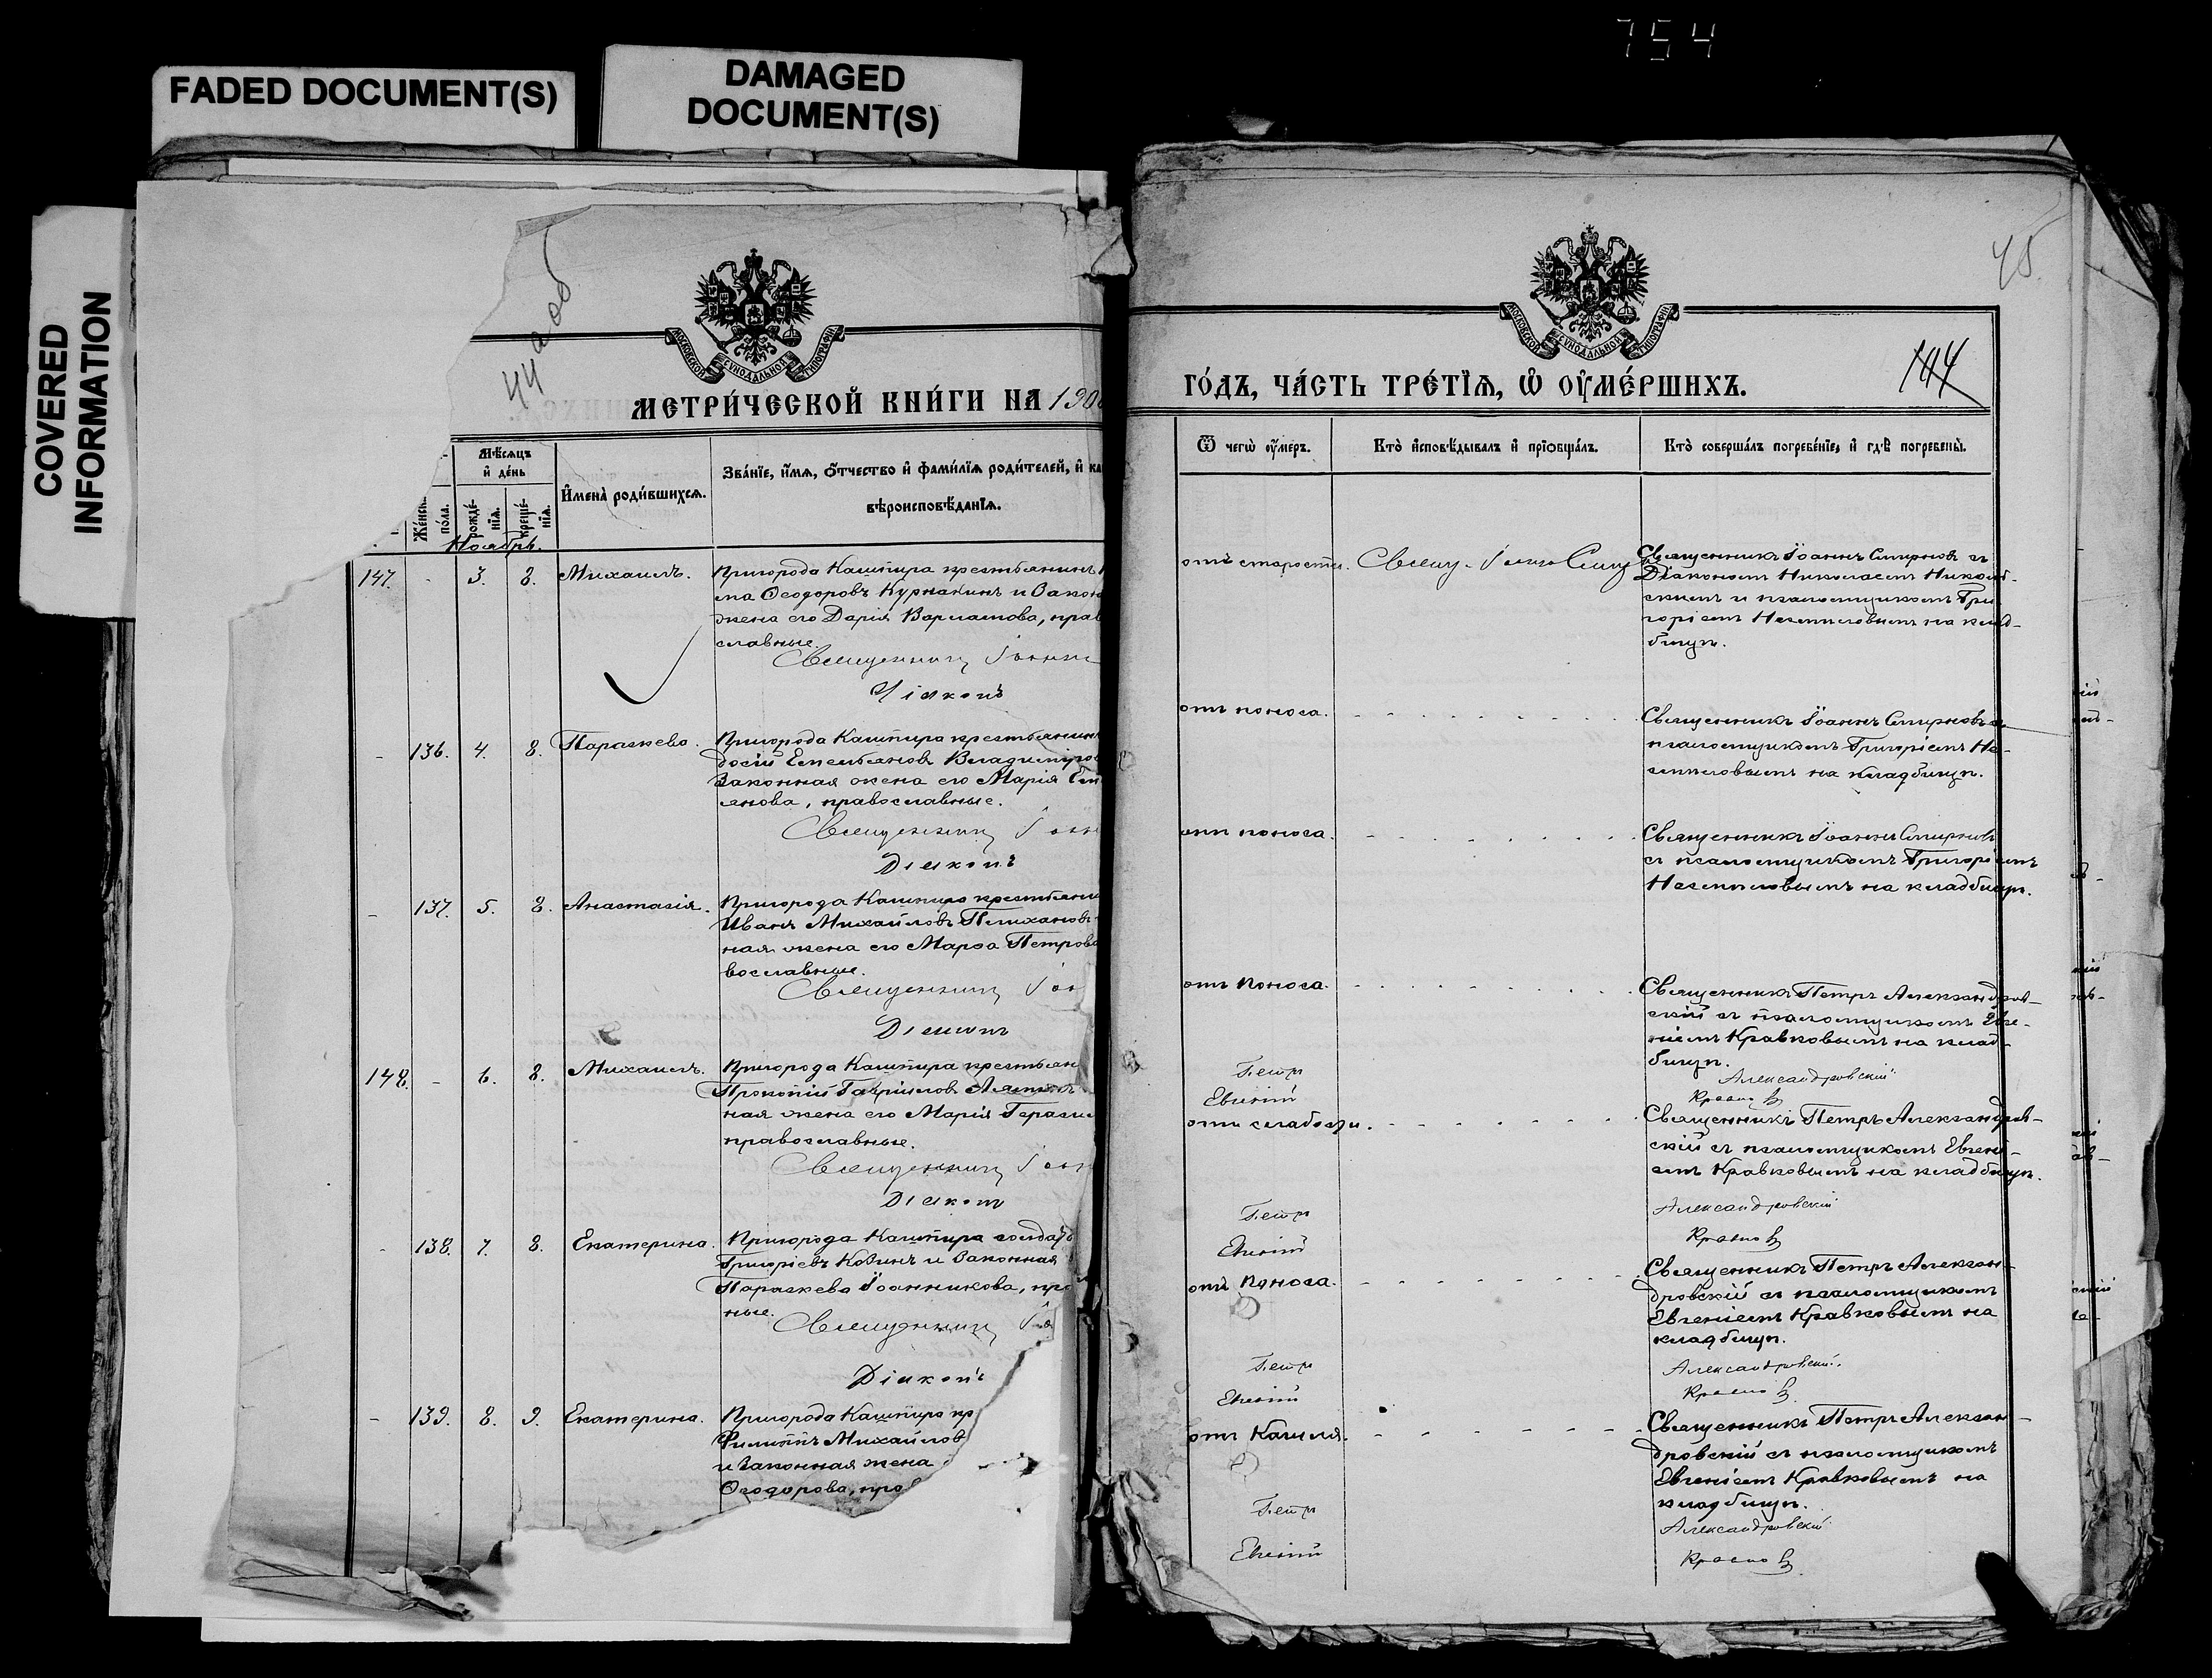 754
FADED DOCUMENT(S)
DAMAGED
DOCUMENT(S)
COVERED
INFORMATION
44 об
МОСКОВСКОЙ СѴНОДАЛЬНОЙ ТИПОГРАФІИ
МЕТРИ́ЧЕСКОЙ КНИ́ГИ НА 190
Мѣсяцъ
и҆ де́нь
Же́нск.
по́ла.
рожде́-
нїѧ.
креще́-
нїѧ.
И҆мена̀ роди́вшихсѧ.
Зва́нїе, и҆́мѧ, ѻ҆́тчество и҆ фами́лїѧ роди́телей, и҆ ка
вѣроисповѣ́данїѧ.
Ноябрь.
147. - 3. 8. Михаилъ.
Пригорода Кашпира крестьянинъ
ма Ѳеодоровъ Курнакинъ и закон
жена его Дарія Варламова, прав
славные.
Священникъ Іоанн
Діаконъ
- 136. 4. 8. Параскева.
Пригорода Кашпира крестьянин
досій Емельянов Владимиров
законная жена его Марія Ем
янова, православные.
Священникъ Іоан
Діаконъ
- 137. 5. 8. Анастасія.
Пригорода Кашпира крестьяни
Иванъ Михайловъ Пелиханов
ная жена его Марѳа Петров
вославные.
Священникъ Іоа
Діаконъ
148. - 6. 8. Михаилъ.
Пригорода Кашпира крестьян
Прокопій Гавріилов
ная жена его Марія Гераси
православные.
Священникъ Іоан
Діаконъ
- 138. 7. 8. Екатерина.
Пригорода Кашпира солдат
Григоріевъ Козинъ и законная
Параскева Іоанникова, пра
ные.
Священникъ Іо
Діаконъ
- 139. 8. 9. Екатерина.
Пригорода Кашпира кр
Филиппъ Михайлов
и законная жена
Ѳеодорова, прав
45
МОСКОВСКОЙ СѴНОДАЛЬНОЙ ТИПОГРАФІИ
ГО́ДЪ, ЧА́СТЬ ТРЕ́ТЇѦ, Ѡ҆ ОУ҆МЕ́РШИХЪ.
144
Ѿ чегѡ̀ оу҆́меръ.
Кто̀ и҆сповѣ́дывалъ и҆ прїѡбща́лъ.
Кто̀ соверша́лъ погребе́нїе, и҆ гдѣ̀ погребены̀.
отъ старости. Свящ. Іоанн Смирнов
Священникъ Іоаннъ Смирнов съ
Діакономъ Николаемъ Николь-
скимъ и псаломщикомъ Гри-
горіемъ Несмѣловымъ на клад-
бищѣ.
отъ поноса.
Священникъ Іоаннъ Смирновъ съ
псаломщикомъ Григоріемъ Не-
смѣловымъ на кладбищѣ.
отъ поноса.
Священникъ Іоаннъ Смирновъ
съ псаломщикомъ Григоріемъ
Несмѣловымъ на кладбищѣ.
отъ поноса.
Священникъ Петръ Александров-
скій съ псаломщикомъ Евге-
ніемъ Кравковымъ на клад-
бищѣ.
Петръ Александровскій
Евгеній Кравковъ
отъ слабости.
Священникъ Петръ Александров-
скій съ псаломщикомъ Евгені-
емъ Кравковымъ на кладбищѣ.
Петръ Александровскій
Евгеній Кравковъ
отъ поноса.
Священникъ Петръ Алексан-
дровскій съ псаломщикомъ
Евгеніемъ Кравковымъ на
кладбищѣ.
Петръ Александровскій.
Евгеній Кравковъ
отъ Кашля.
Священникъ Петръ Алексан-
дровскій съ псаломщикомъ
Евгеніемъ Кравковымъ на
кладбищѣ.
Петръ Александровскій
Евгеній Кравковъ